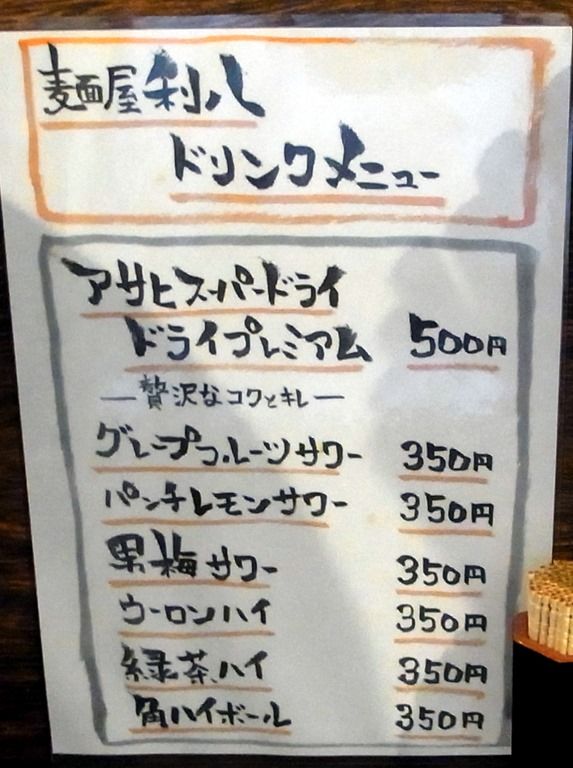 麺屋利八
ドリンクメニュー
アサヒスーパードライ
ドライプレミアム 500円
―贅沢なコクとキレ―
グレープフルーツサワー 350円
パンチレモンサワー 350円
黒梅サワー 350円
ウーロンハイ 350円
緑茶ハイ 350円
角ハイボール 350円